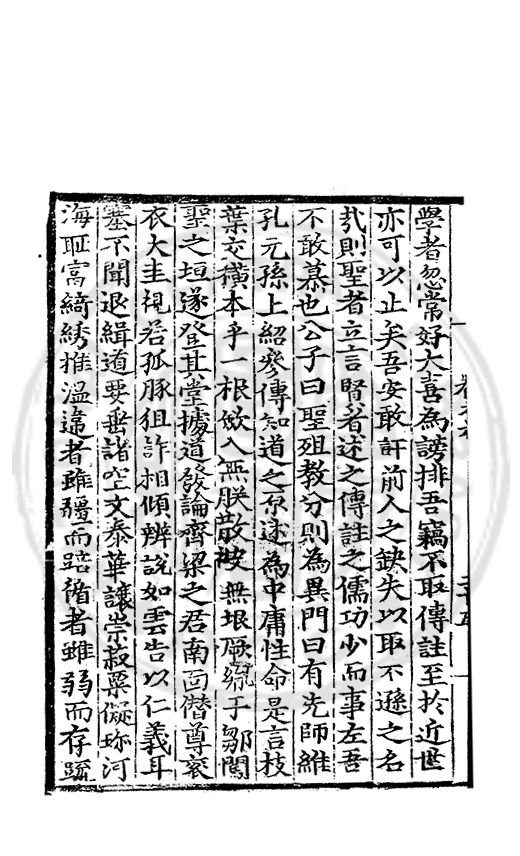 學者忽常好大喜為謗排吾竊不取傳註至於近世
亦可以止矣吾安敢訐前人之缺失以取不遜之名
㢤則聖者立言賢者述之傳註之儒功少而事左吾
不敢慕也公子曰聖殂教分則為異門曰有先師維
孔元孫上紹參傳知道之原遂為中庸性命是言枝
葉交橫本乎一根斂入無朕散被無垠厥統于鄒闖
聖之垣遂登其堂據道發論齊梁之君南面僭尊袞
衣大圭視若孤豚狙詐相傾辨說如雲告以仁義耳
塞不聞退緝道要垂諸空文泰華讓崇菽粟儗珍河
海耻富綺綉推溫違者雖彊而踣循者雖弱而存䟽